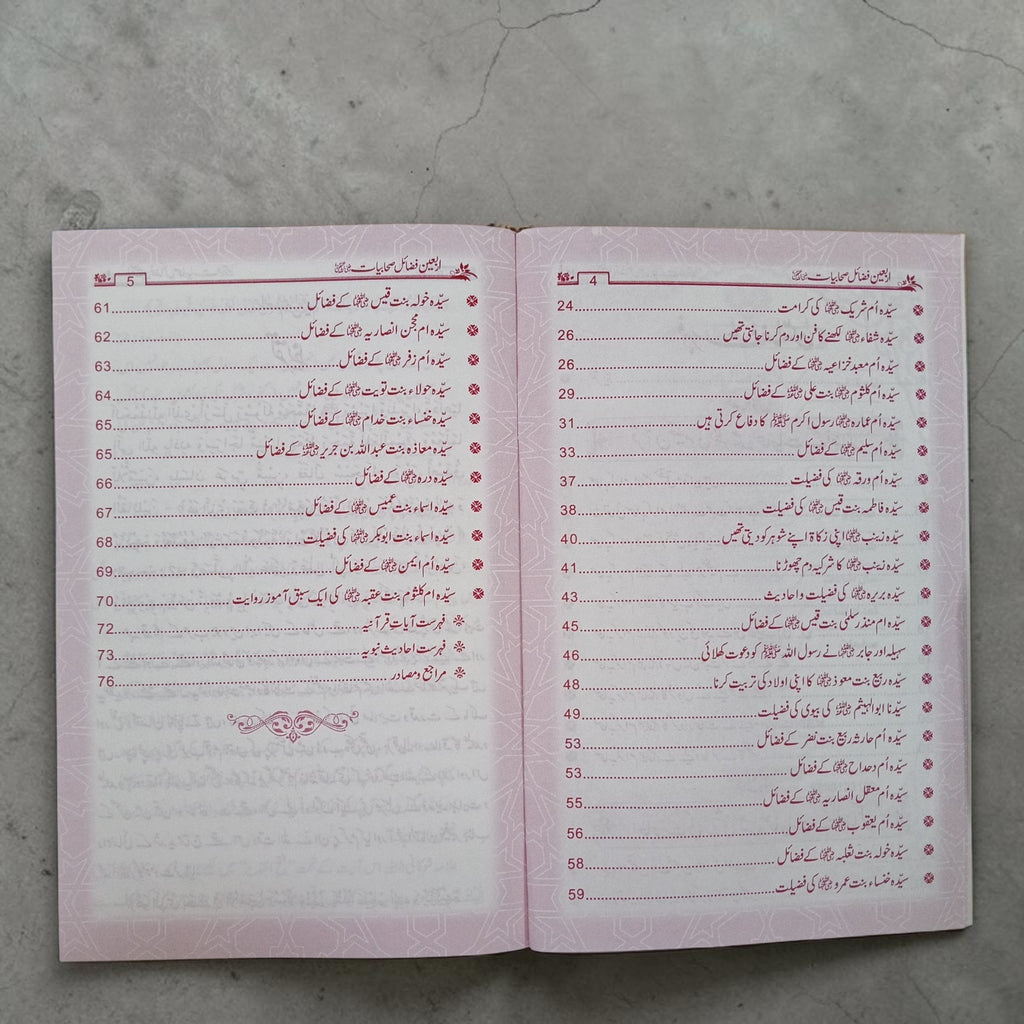 4 اربعین فضائل صحابیات رضی اللہ عنہن
سیّدہ اُم شریک رضی اللہ عنہا کی کرامت 24
سیّدہ شفاء رضی اللہ عنہا لکھنے کا فن اور دم کرنا جانتی تھیں 26
سیّدہ اُم معبد خزاعیہ رضی اللہ عنہا کے فضائل 26
سیّدہ اُم کلثوم رضی اللہ عنہا بنت علی رضی اللہ عنہ کے فضائل 29
سیّدہ اُم عمارہ رضی اللہ عنہا رسول اکرم ﷺ کا دفاع کرتی ہیں 31
سیّدہ اُم سلیم رضی اللہ عنہا کے فضائل 33
سیّدہ اُم ورقہ رضی اللہ عنہا کی فضیلت 37
سیّدہ فاطمہ بنت قیس رضی اللہ عنہا کی فضیلت 38
سیّدہ زینب رضی اللہ عنہا اپنی زکاۃ اپنے شوہر کو دیتی تھیں 40
سیّدہ زینب رضی اللہ عنہا کا شرکیہ دم چھوڑنا 41
سیّدہ بریرہ رضی اللہ عنہا کی فضیلت و احادیث 43
سیّدہ ام منذر سلمٰی بنت قیس رضی اللہ عنہا کے فضائل 45
سہیلہ اور جابر رضی اللہ عنہما نے رسول اللہ ﷺ کو دعوت کھلائی 46
سیّدہ ربیع بنت معوذ رضی اللہ عنہا کا اپنی اولاد کی تربیت کرنا 48
سیّدنا ابوالہیثم رضی اللہ عنہ کی بیوی کی فضیلت 49
سیّدہ اُم حارثہ ربیع بنت نضر کے فضائل 53
سیّدہ اُم دحداح رضی اللہ عنہا کے فضائل 53
سیّدہ اُم معقل انصاریہ رضی اللہ عنہا کے فضائل 55
سیّدہ اُم یعقوب رضی اللہ عنہا کے فضائل 56
سیّدہ خولہ بنت ثعلبہ رضی اللہ عنہا کے فضائل 58
سیّدہ خنساء بنت عمرو رضی اللہ عنہا کی فضیلت 59
5 اربعین فضائل صحابیات رضی اللہ عنہن
سیّدہ خولہ بنت قیس رضی اللہ عنہا کے فضائل 61
سیّدہ ام محجن انصاریہ رضی اللہ عنہا کے فضائل 62
سیّدہ اُم زفر رضی اللہ عنہا کے فضائل 63
سیّدہ حولاء بنت تویت رضی اللہ عنہا کے فضائل 64
سیّدہ خنساء بنت خدام رضی اللہ عنہا کے فضائل 65
سیّدہ معاذہ بنت عبداللہ بن جریر رضی اللہ عنہ کے فضائل 65
سیّدہ درہ رضی اللہ عنہا کے فضائل 66
سیّدہ اسماء بنت عمیس رضی اللہ عنہا کے فضائل 67
سیّدہ اسماء بنت ابوبکر رضی اللہ عنہا کی فضیلت 68
سیّدہ اُم ایمن رضی اللہ عنہا کے فضائل 69
سیّدہ ام کلثوم بنت عقبہ رضی اللہ عنہا کی ایک سبق آموز روایت 70
فہرست آیات قرآنیہ 72
فہرست احادیث نبویہ 73
مراجع و مصادر 76